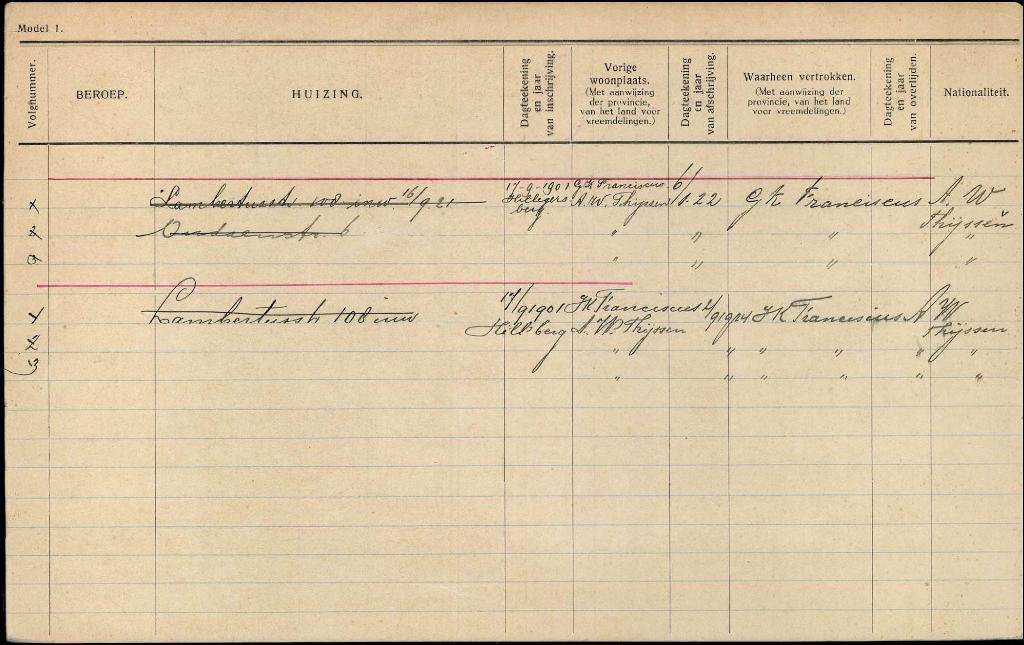 Model 1.
Volgnummer.
BEROEP.
HUIZING.
Dagteekening
en jaar
van inschrijving.
Vorige
woonplaats.
(Met aanwijzing
der provincie,
van het land voor
vreemdelingen.)
Dagteekening
en jaar
van afschrijving.
Waarheen vertrokken.
(Met aanwijzing der
provincie, van het land
voor vreemdelingen.)
Dagteekening
en jaar
van overlijden.
Nationaliteit.
Lambertusstr 108 inw 16/9 21 17-9-1901 GK Franciscus 6/1.22 GK Franciscus A. W.
Hillegers A. W. Thijssen Thijssen
berg
6 " " " "
" " " "
Lambertusstr 108 inw 17/9 1901 GK Franciscus GK Franciscus A W
Hill.berg A. W. Thijssen Thijssen
2 " " " " " "
3 " " " " " "